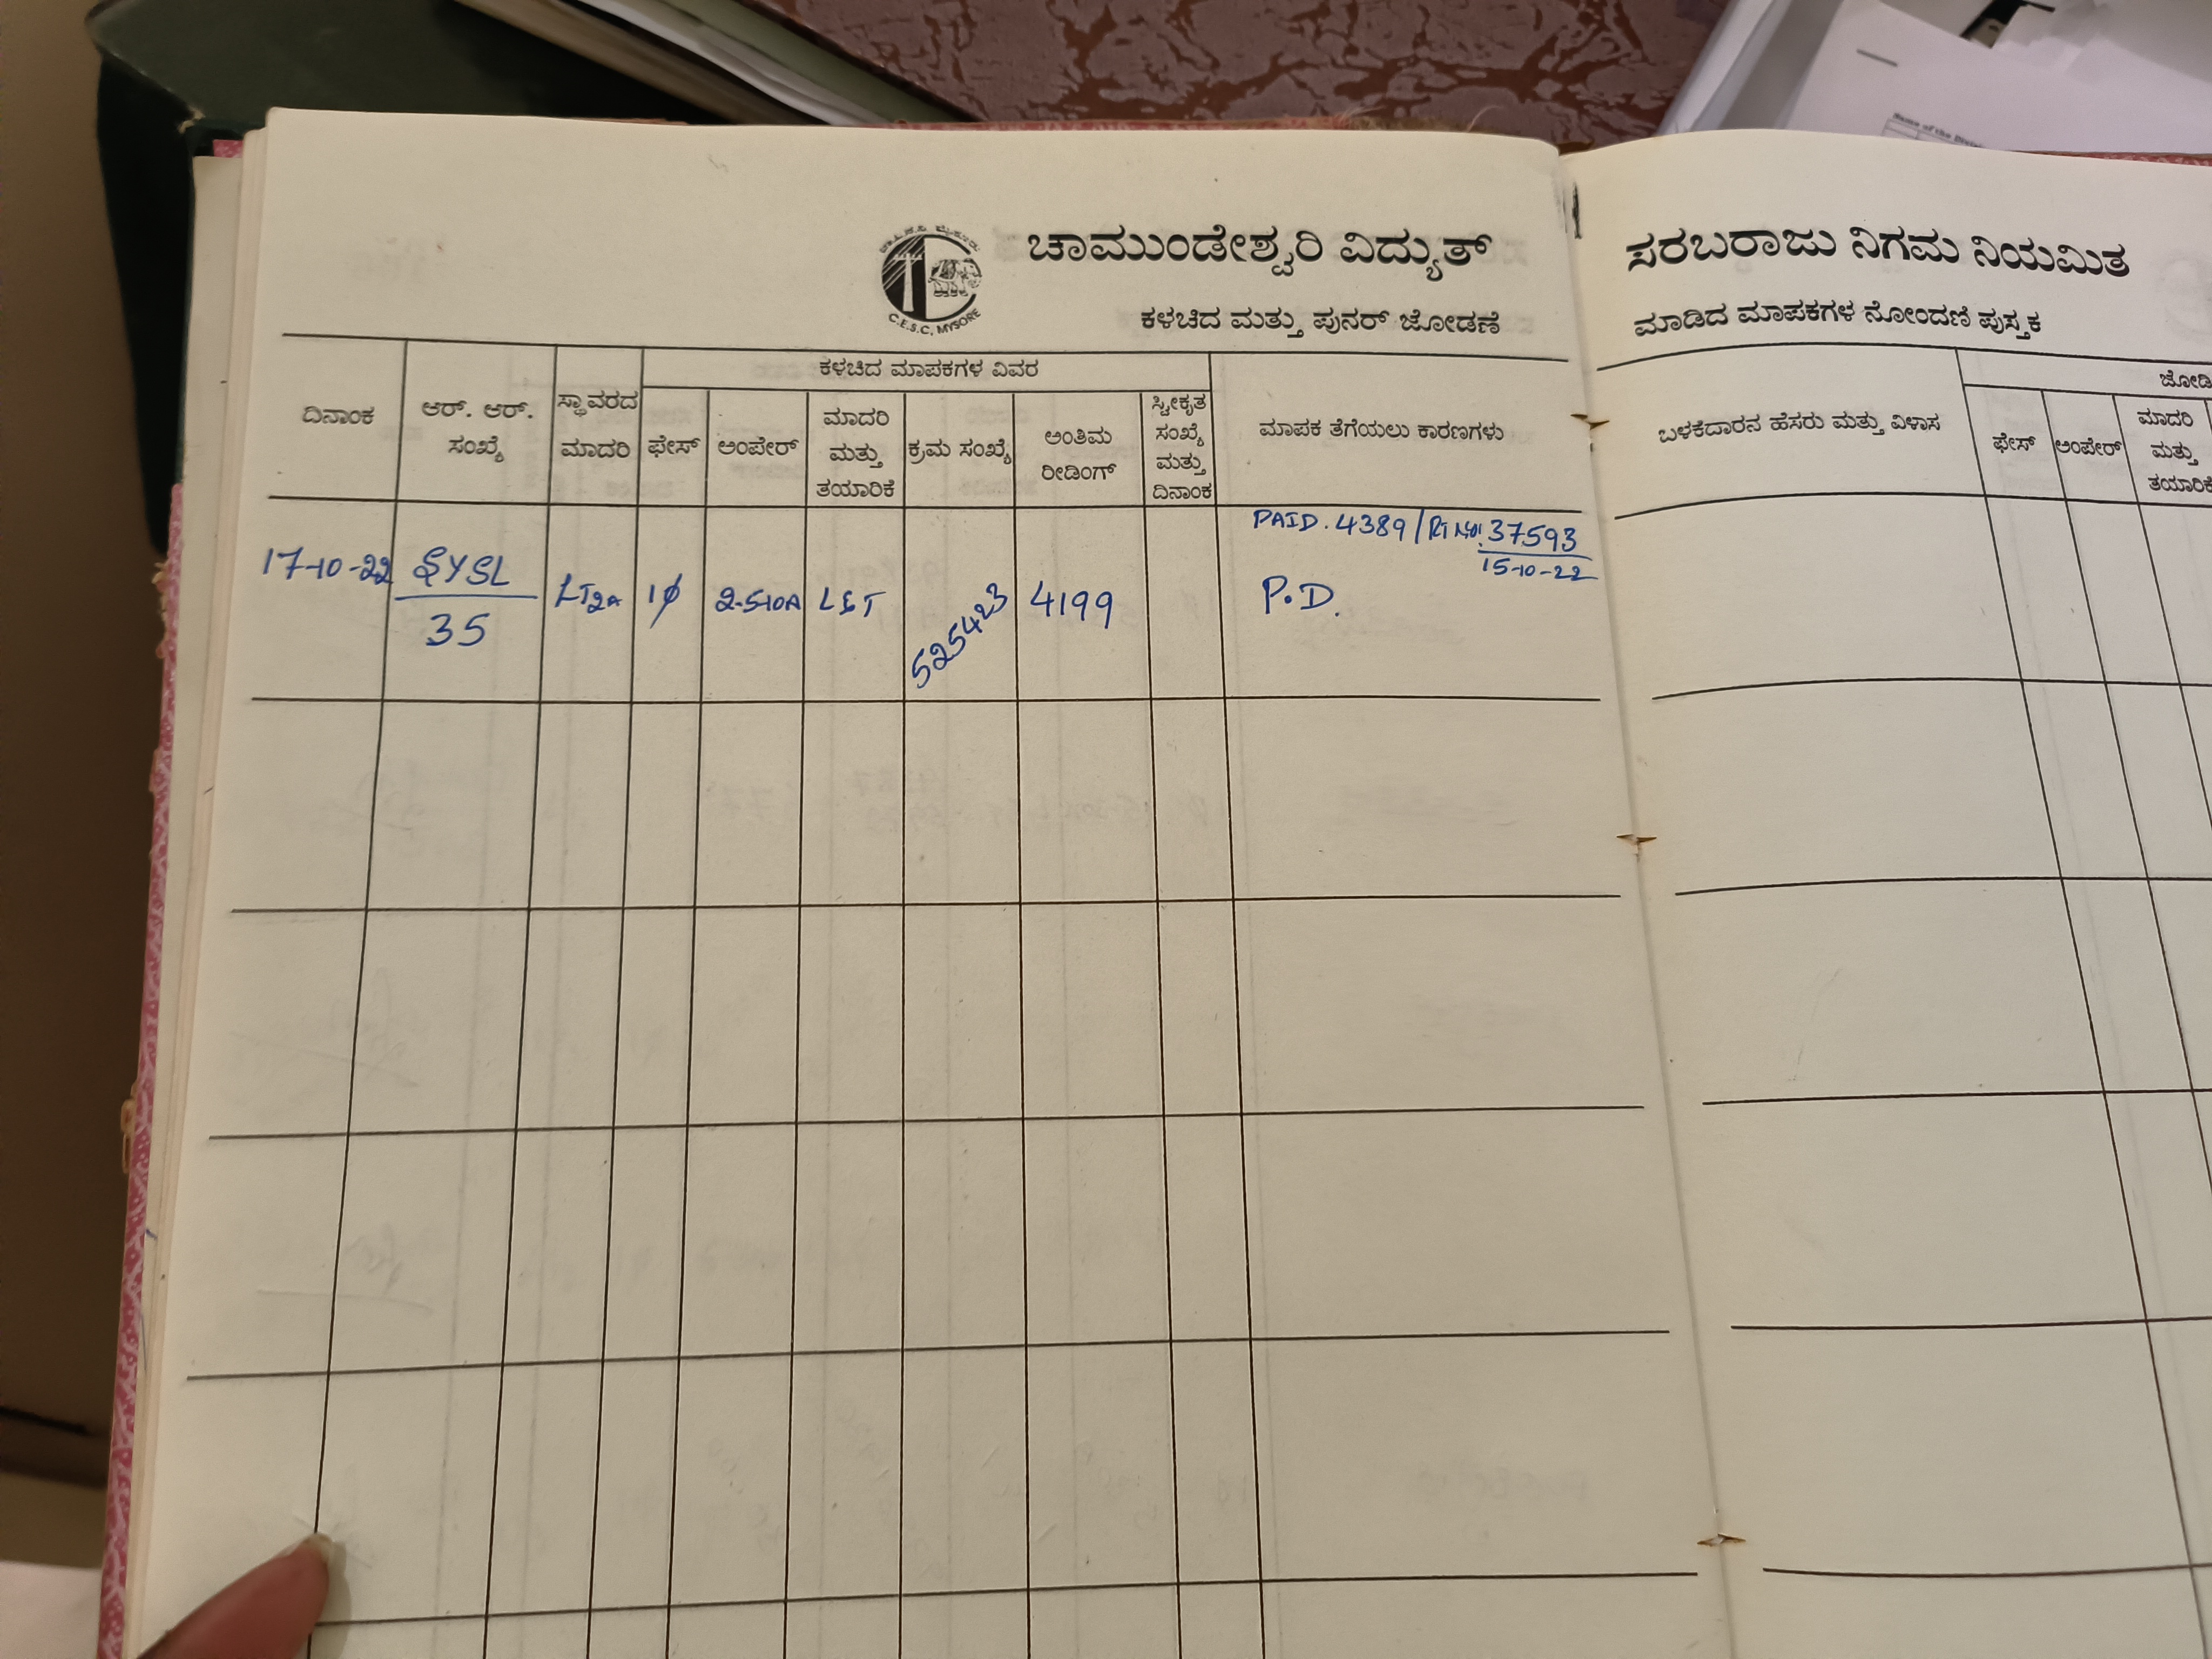 ಚಾಮುಂಡೇಶ್ವರಿ ವಿದ್ಯುತ್ ಸರಬರಾಜು ನಿಗಮ ನಿಯಮಿತ
C.E.S.C, MYSORE
ಕಳಚಿದ ಮತ್ತು ಪುನರ್ ಜೋಡಣೆ ಮಾಡಿದ ಮಾಪಕಗಳ ನೋಂದಣಿ ಪುಸ್ತಕ
ದಿನಾಂಕ
ಆರ್. ಆರ್.
ಸಂಖ್ಯೆ
ಸ್ಥಾವರದ
ಮಾದರಿ
ಕಳಚಿದ ಮಾಪಕಗಳ ವಿವರ
ಫೇಸ್
ಅಂಪೇರ್
ಮಾದರಿ
ಮತ್ತು
ತಯಾರಿಕೆ
ಕ್ರಮ ಸಂಖ್ಯೆ
ಅಂತಿಮ
ರೀಡಿಂಗ್
ಸ್ವೀಕೃತ
ಸಂಖ್ಯೆ
ಮತ್ತು
ದಿನಾಂಕ
ಮಾಪಕ ತೆಗೆಯಲು ಕಾರಣಗಳು
ಬಳಕೆದಾರನ ಹೆಸರು ಮತ್ತು ವಿಳಾಸ
ಫೇಸ್
ಅಂಪೇರ್
ಮಾದರಿ
ಮತ್ತು
ತಯಾರಿಕೆ
17-10-22
SYSL
35
LT2A
1ϕ
2.5-10A
L&T
525423
4199
PAID. 4389/RT NO: 37593
15-10-22
P.D.